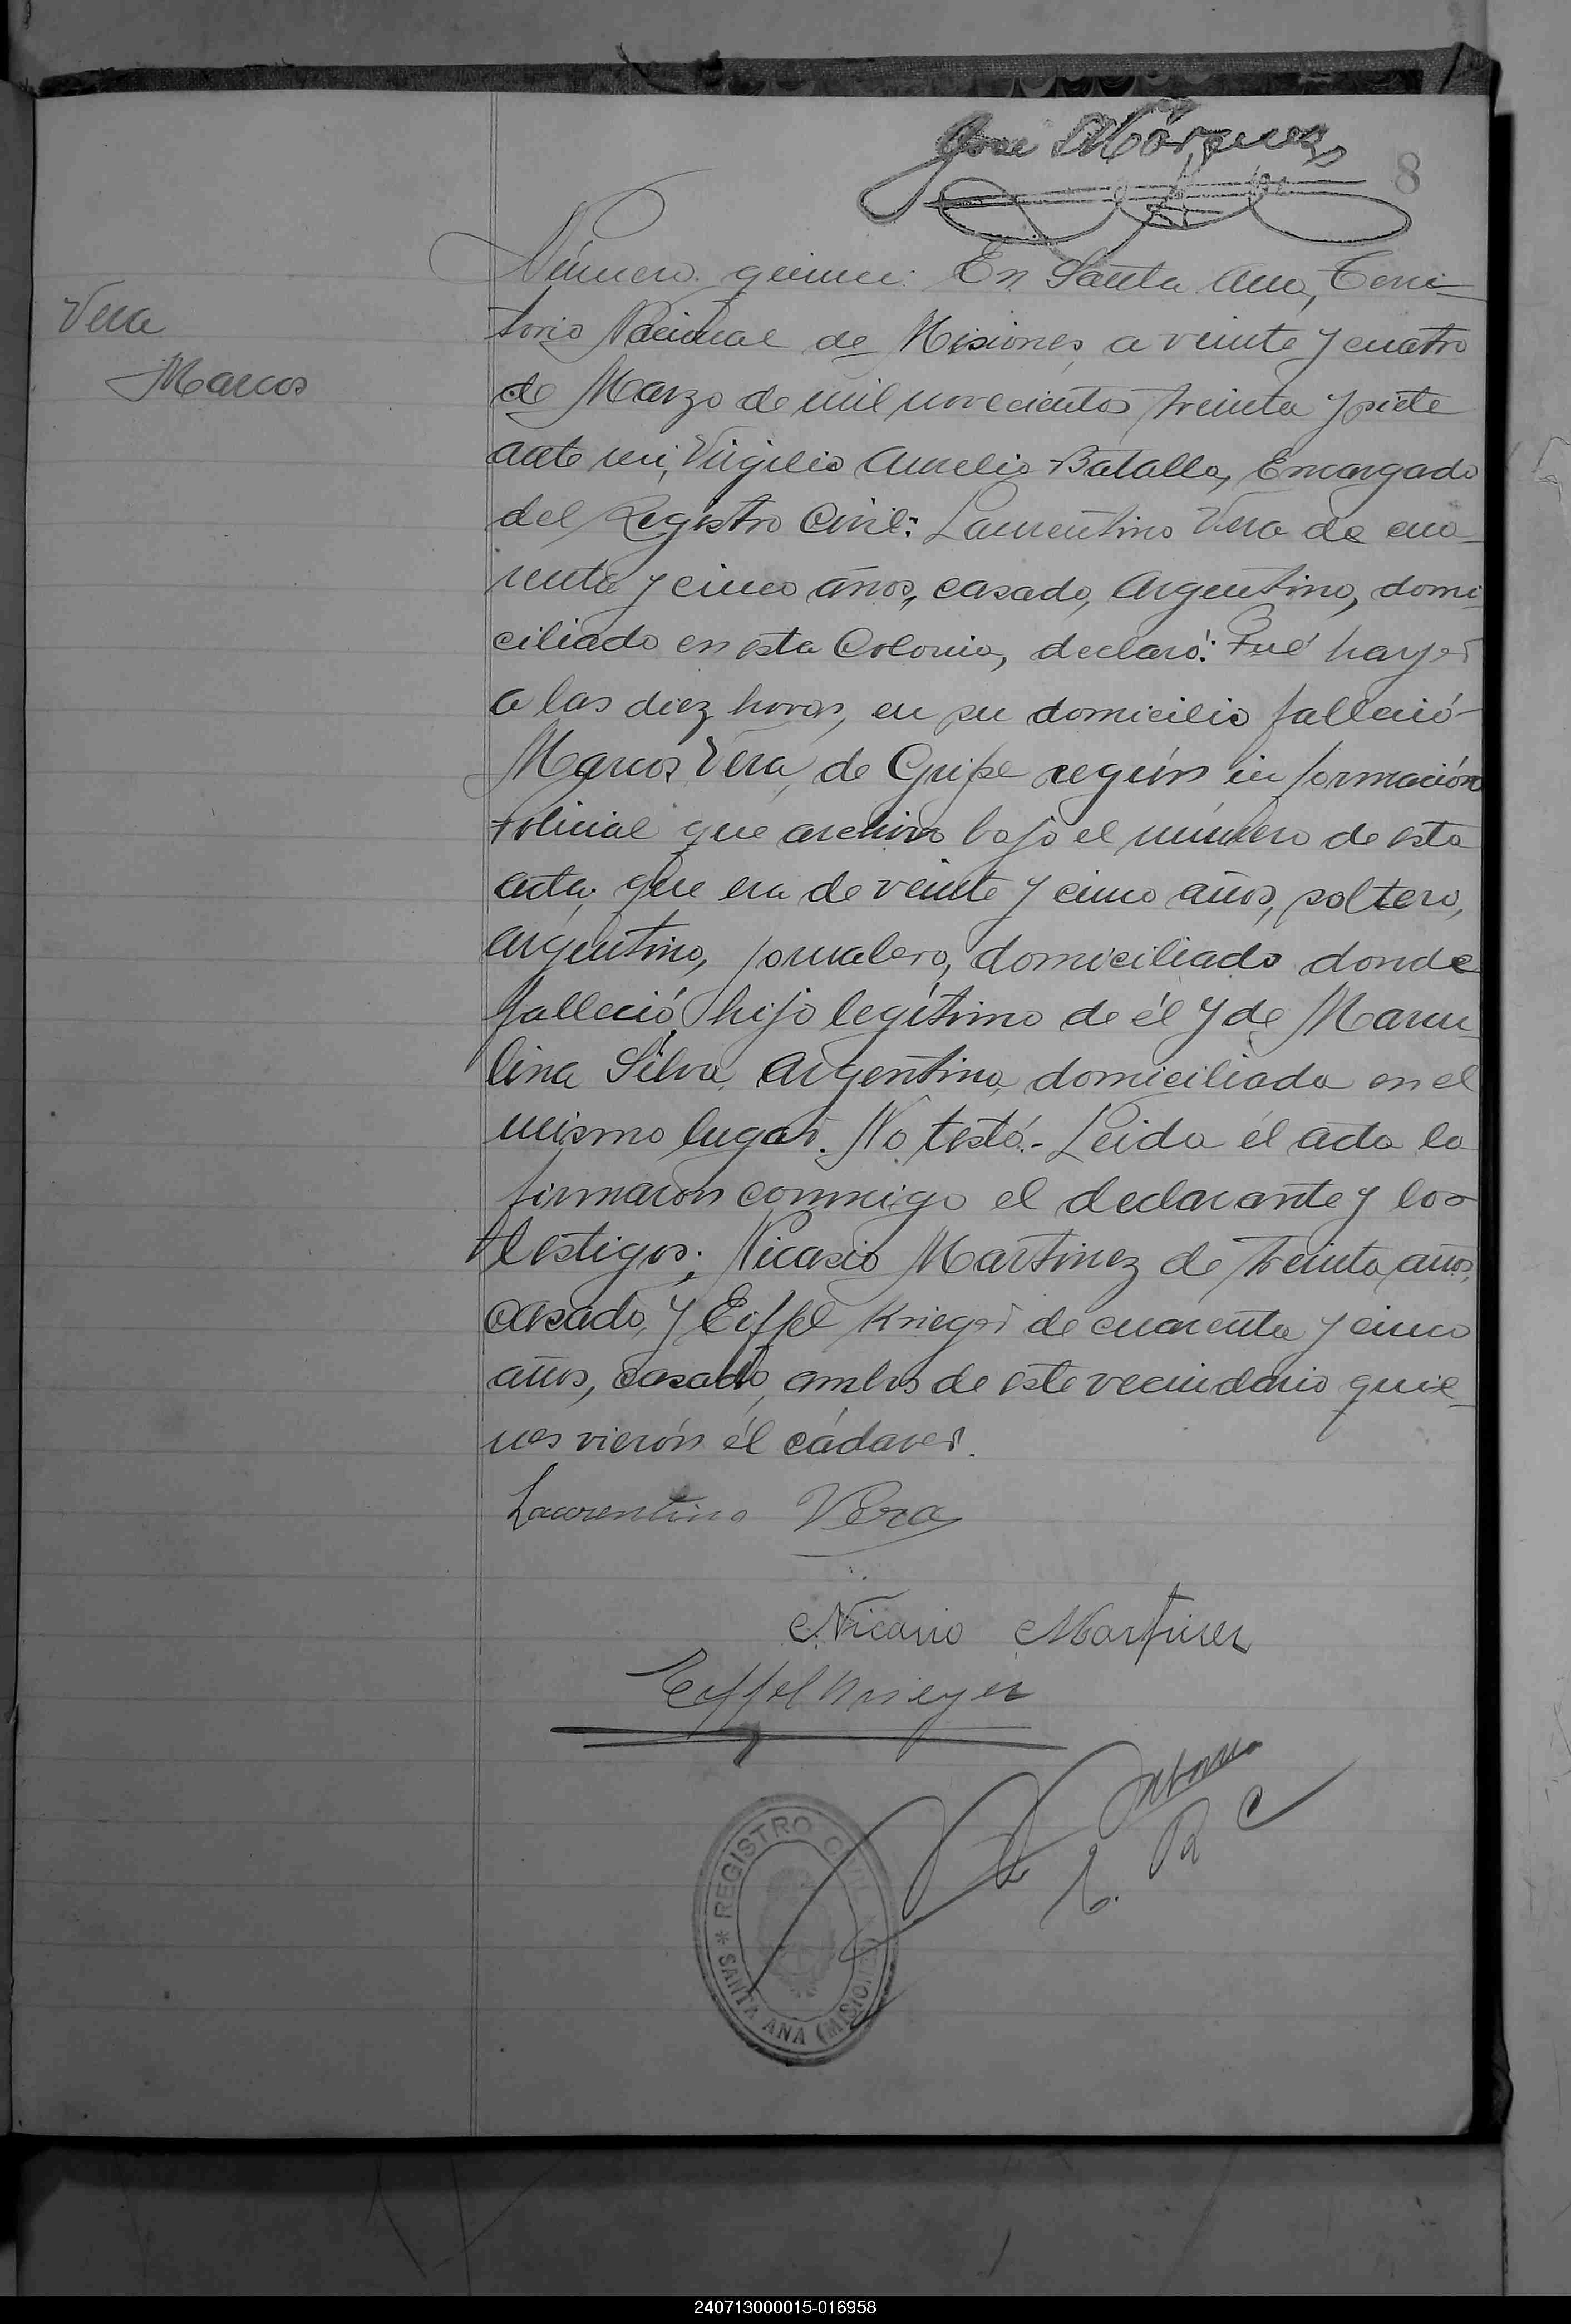 Jose Márquez
8
Número quince: En Santa Ana, Terri-
torio Nacional de Misiones, a veinte y cuatro
de Marzo de mil novecientos treinta y siete
ante mi, Virgilio Aurelio Batalla, Encargado
del Registro Civil: Laurentino Vera de cua-
renta y cinco años, casado, Argentino, domi-
ciliado en esta Colonia, declaró: Qué hayer
a las diez horas, en su domicilio falleció
Marcos Vera, de Gripe según información
Policial que archivo bajo el número de esta
acta, que era de veinte y cinco años, soltero,
argentino, jornalero, domiciliado donde
falleció, hijo legítimo de él y de Marcu-
lina Silva, Argentina, domiciliada en el
mismo lugar. No testó.- Leida él acta la
firmaron conmigo el declarante y los
testigos; Nicasio Martinez de treinta años,
casado, y Eiffel Krieger de cuarenta y cinco
años, casado, ambos de este vecindario quie-
nes vierón él cádaver.
Vera
Marcos
Laurentino Vera
Nicasio Martinez
Eiffel Krieger
E. R C
* REGISTRO CIVIL *
SANTA ANA (MISIONES)
240713000015-016958